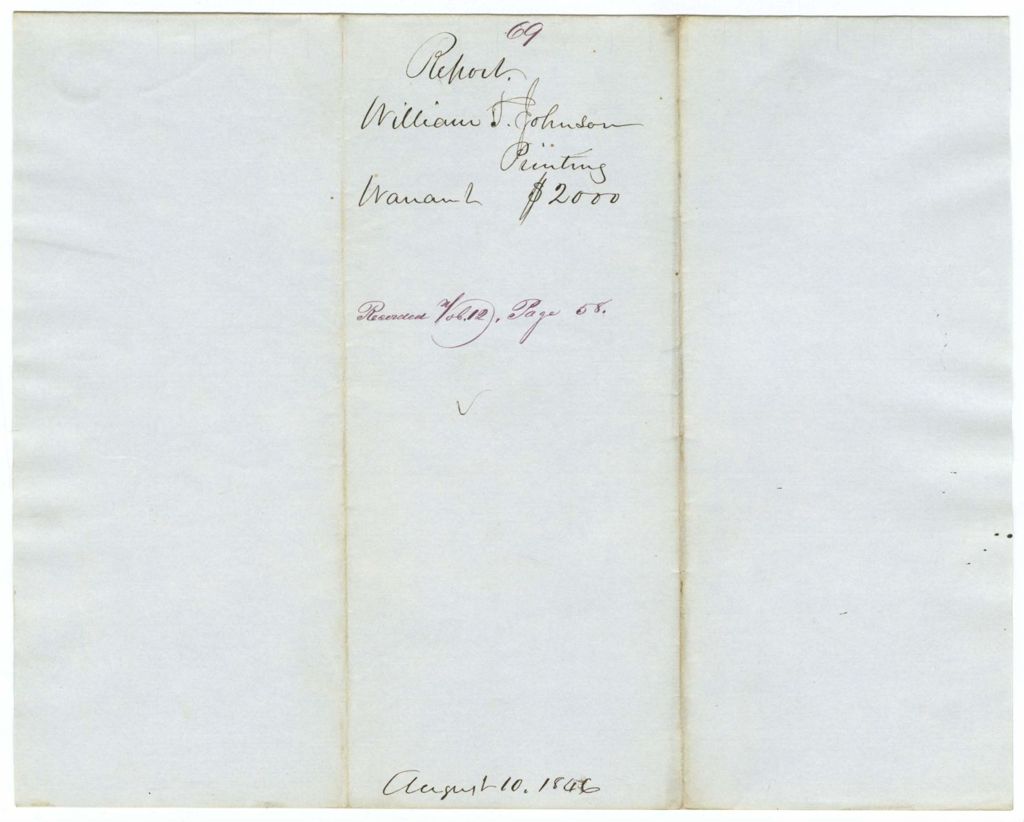 69
Report.
William T. Johnson
Printing
Warrant $2000
Recorded Vol. 12, Page 58.
August 10. 1846